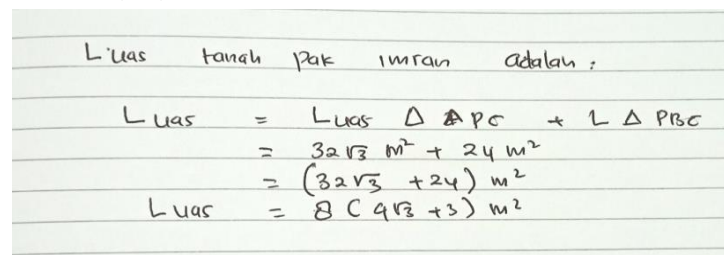 Luas tanah pak imran adalah :
Luas = Luas Δ APC + L Δ PBC
= 32√3 m² + 24 m²
= (32√3 + 24) m²
Luas = 8 (4√3 + 3) m²